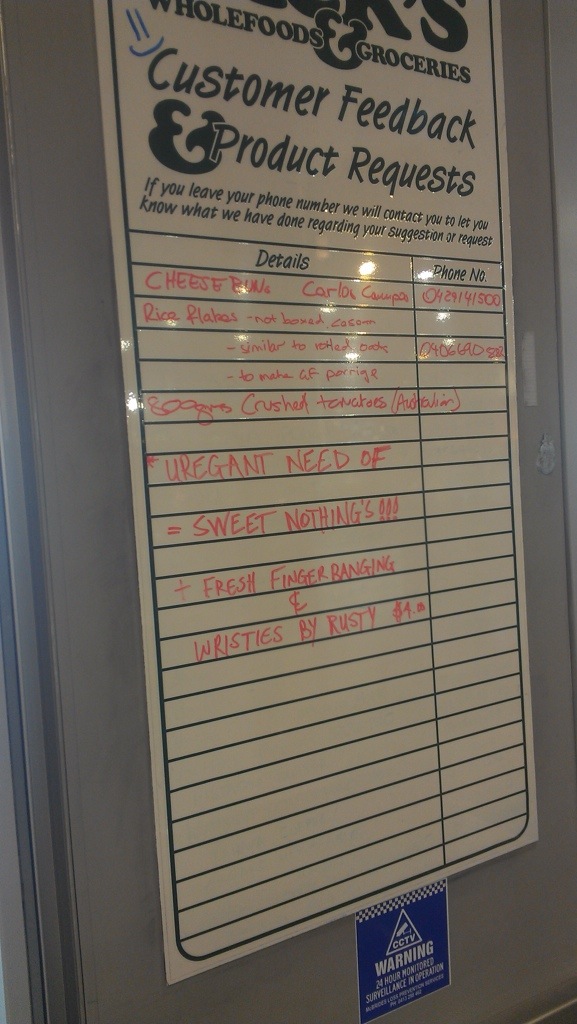 WHOLEFOODS & GROCERIES
Customer Feedback
& Product Requests
If you leave your phone number we will contact you to let you
know what we have done regarding your suggestion or request
Details Phone No.
CHEESE Carlos 0429141500
Rice Flakes - not boxed
- similar to rolled oats
- to make GF porrige
800gms Crushed tomatoes (Australian)
* UREGANT NEED OF
= SWEET NOTHING'S !!!
+ FRESH FINGERBANGING
&
WRISTIES BY RUSTY $4.00
CCTV
WARNING
24 HOUR MONITORED
SURVEILLANCE IN OPERATION
LOSS PREVENTION SERVICES